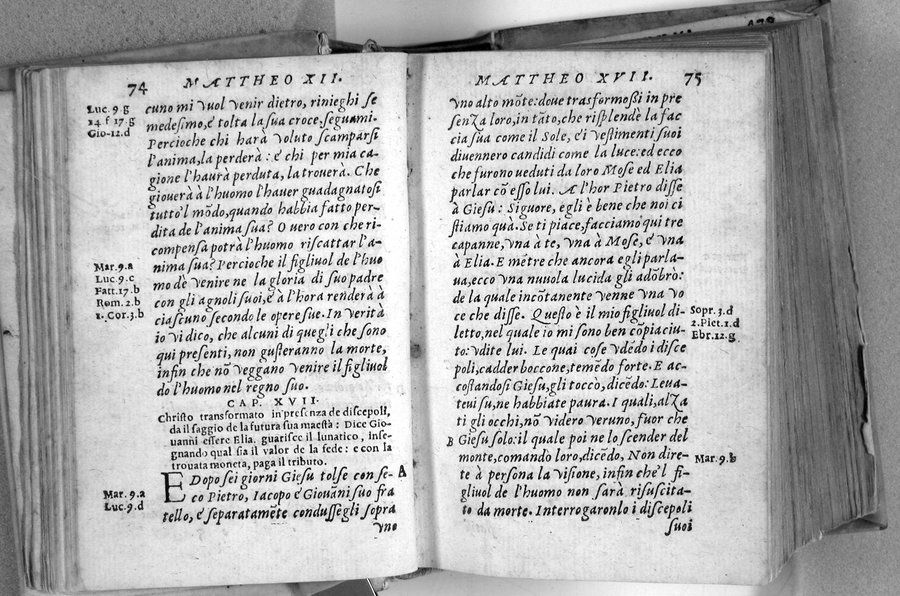 74
MATTHEO XII.
Luc. 9. g
14. f 17. g
Gio-12. d
cuno mi vuol venir dietro, rinieghi se
medesimo, é tolta la sua croce, seguami.
Percioche chi harà voluto scamparsi
l'anima, la perderà: é chi per mia ca-
gione l'haurà perduta, la trouerà. Che
giouerà à l'huomo l'hauer guadagnatosi
tutto'l mõdo, quando habbia fatto per-
dita de l'anima sua? O uero con che ri-
compensa potrà l'huomo riscattar l'a-
nima sua? Percioche il figliuol de l'huo
mo dè venire ne la gloria di suo padre
con gli agnoli suoi, é à l'hora renderà à
ciascuno secondo le opere sue. In verità
io vi dico, che alcuni di quegli che sono
qui presenti, non gusteranno la morte,
infin che nõ veggano venire il figliuol
do l'huomo nel regno suo.
Mar. 9. a
Luc. 9. c
Fatt. 17. b
Rom. 2. b
2. Cor. 3. b
CAP. XVII.
Christo transformato in presenza de discepoli,
da il saggio de la futura sua maestà: Dice Gio-
uanni essere Elia. guarisce il lunatico, inse-
gnando qual sia il valor de la fede: e con la
trouata moneta, paga il tributo.
E Dopo sei giorni Giesu tolse con se- A
co Pietro, Iacopo é Giouãni suo fra
tello, é separatamẽte condussegli sopra
vno
Mar. 9. a
Luc. 9. d
MATTHEO XVII.
75
vno alto mõte: doue trasformoßi in pre
senza loro, in tãto, che risplendè la fac
cia sua come il Sole, é i vestimenti suoi
diuennero candidi come la luce: ed ecco
che furono veduti da loro Mose ed Elia
parlar cõ esso lui. A l'hor Pietro disse
à Giesu: Siguore, egli è bene che noi ci
stiamo quà. Se ti piace, facciamo qui tre
capanne, vna à te, vna à Mose, é vna
à Elia. E mẽtre che ancora egli parla-
ua, ecco vna nuuola lucida gli adõbrò:
de la quale incõtanente venne vna vo
ce che disse. Questo è il mio figliuol di-
letto, nel quale io mi sono ben cõpiaciu-
to: vdite lui. Le quai cose vdẽdo i disce
poli, cadder boccone, temẽdo forte. E ac-
costandosi Giesu, gli toccò, dicẽdo: Leua-
teui su, ne habbiate paura. I quali, alza
ti gli occhi, nõ videro veruno, fuor che
B Giesu solo: il quale poi ne lo scender del
monte, comandò loro, dicẽdo, Non dire-
te à persona la visione, infin che'l fi-
gliuol de l'huomo non sarà risuscita-
to da morte. Interrogaronlo i discepoli
suoi
Sopr. 3. d
2. Piet. 1. d
Ebr. 12. g
Mar. 9. b